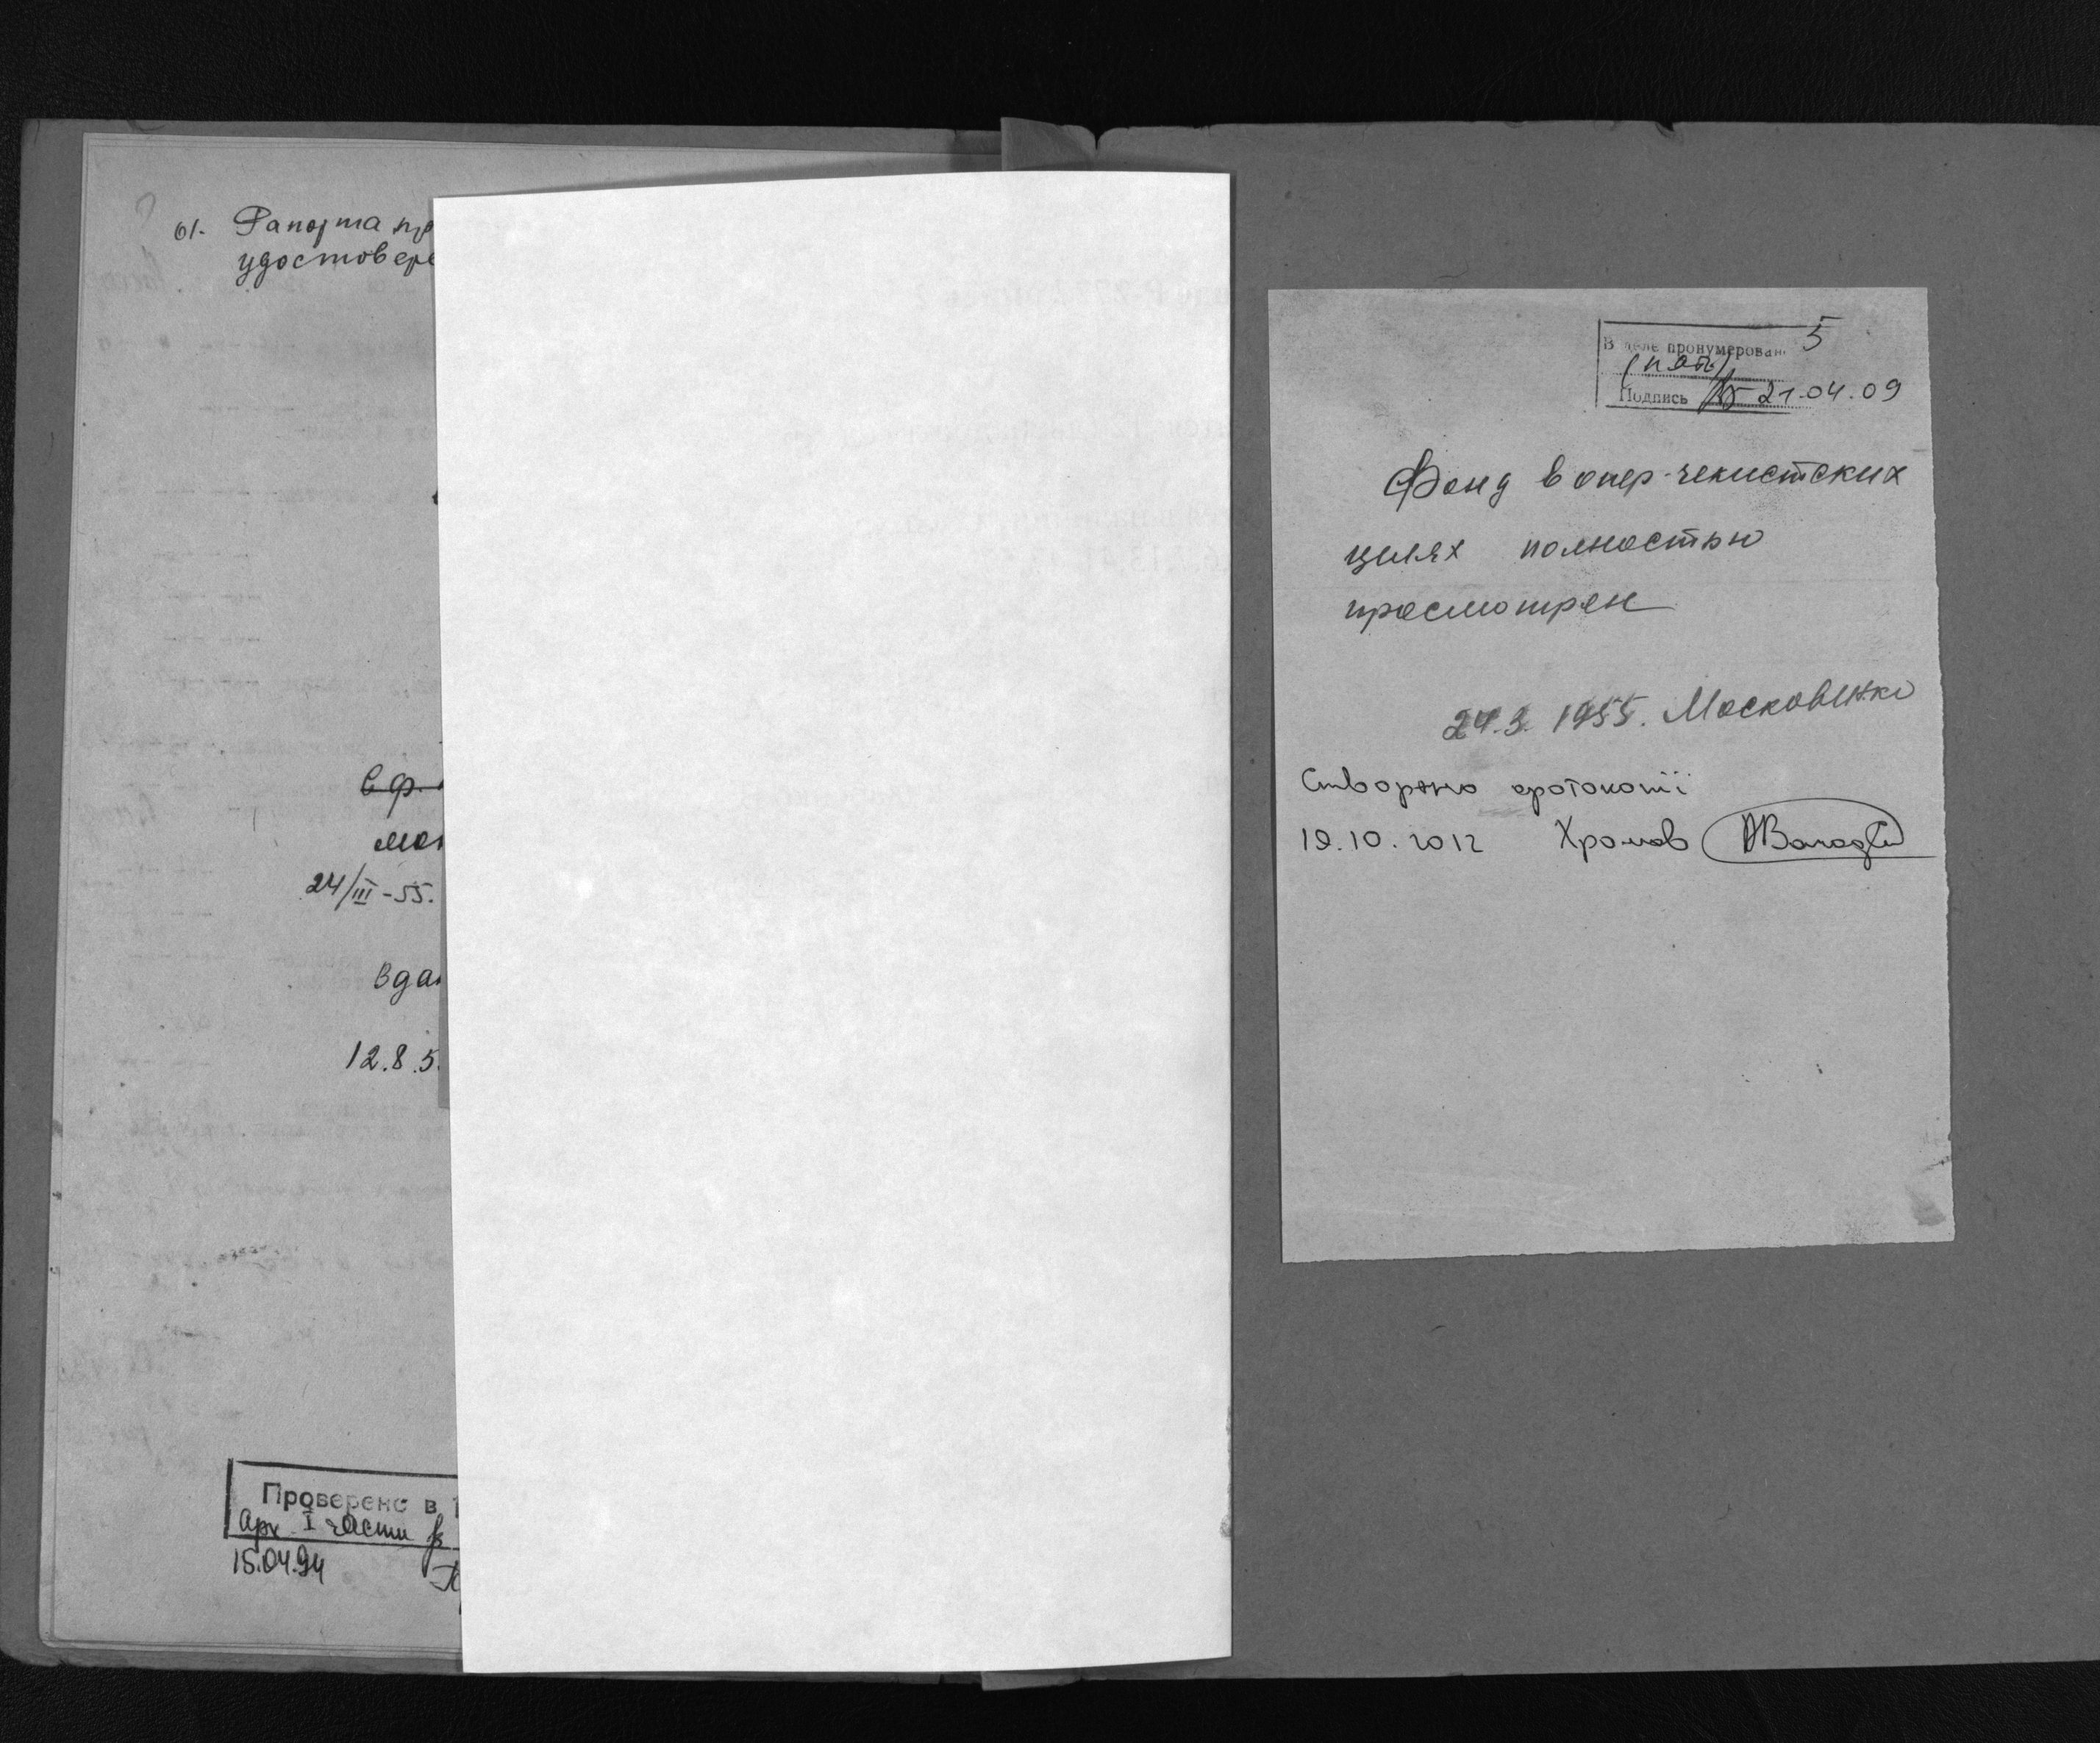 61. Рапорта
удостовере
В ф.
24/III-55.
Вда
12.8.5
Проверено в
Арх. I части
15.04.94
В деле пронумерован 5
(пять)
Подпись 21.04.09
Фонд в опер-чекистских
целях полностью
просмотрен
24.3. 1955. Московенко
Створено фотокопії
19.10.2012 Храмов